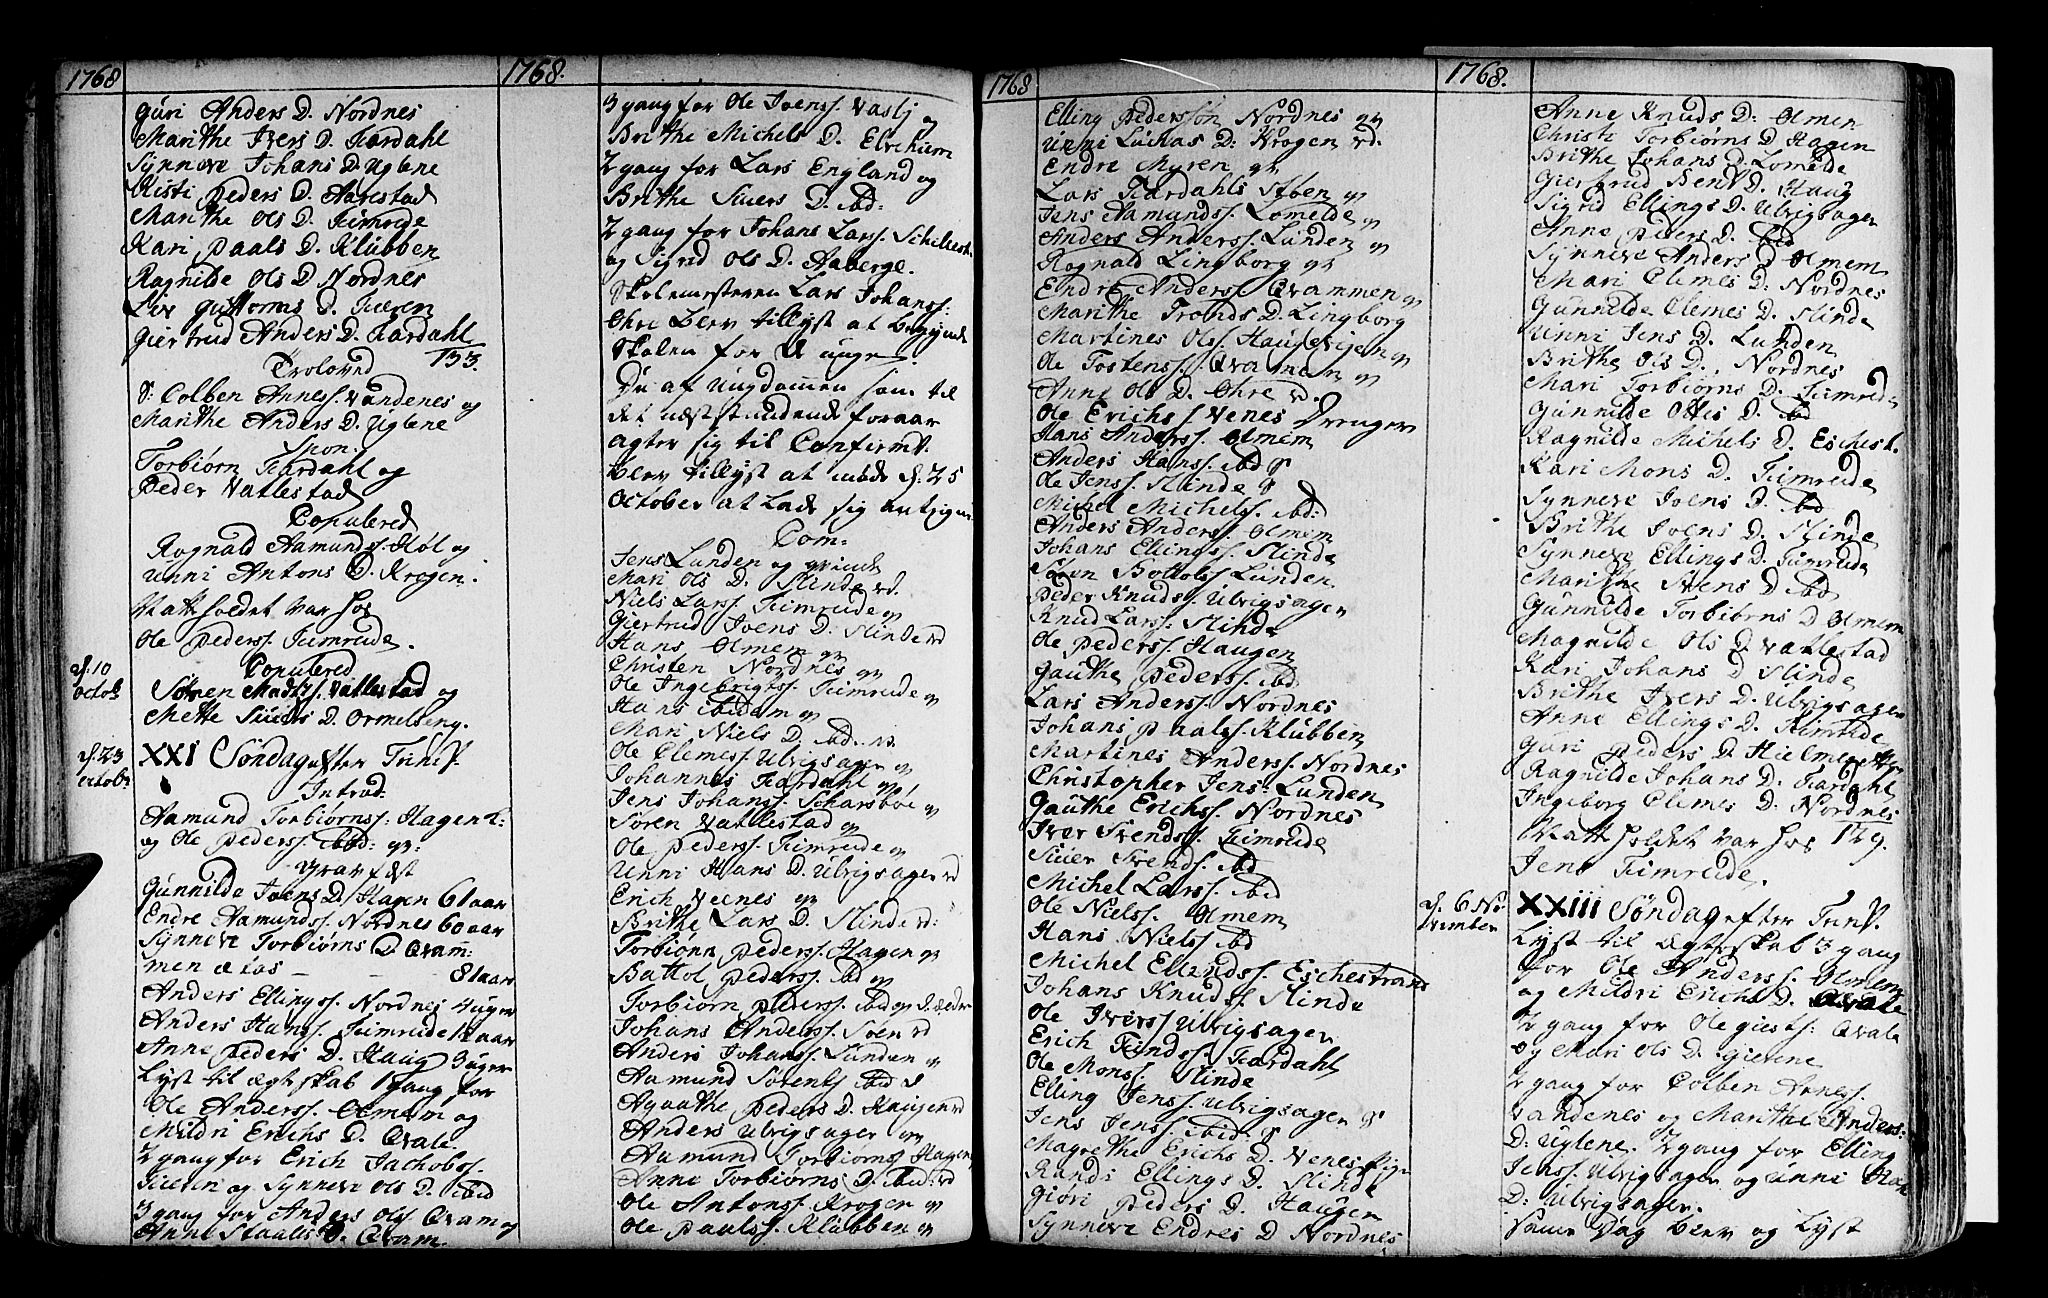 1768
Guri Anders D. Nordnes
Marithe Ivers D. Kardahl
Synneve Johans D. Uglene
Kisti Peders D. Aarestad
Marithe Ols D. Timreide
Kari Paals D. Klubben
Ragnilde Ols D. Nordnes
Liv Guttorms D. Tieren
Giertrud Anders D. Kardahl
133.
Troloved
S: Colben Anness. Vandenes og
Marithe Anders D. Uglene
Spon:
Torbiørn Kardahl og
Peder Vatlestad
Copulered
Rognald Aamunds. Høl og
Unni Antons D. Krogen.
Natt holdet var hos
Ole Peders. Timreide.
d. 10 octob:
Copulered
Søren Madss. Vatlestad og
Mette Siuers D. Ormelseng.
d. 23 octob:
XXI Søndag efter Trinit.
Introd:
Aamund Torbiørns: Hagen
og Ole Peders. ibid:
Gravfæst
Gunnilde Joens D. Hagen 61 aar
Endre Aamunds. Nordnes 60 aar
Synneve Torbiørns D. Qvam:
men ætas - - - 81 aar
Anders Ellings. Nordnes uger
Anders Hans. Timreide aar
Anne Peders D. Haug 3 uger
Lyst til ægteskab 1 gang for
Ole Anders. Olmem og
Mildri Erichs D. Qvale
2 gang for Erich Jachobs.
og Synneve Ols D. ibid
3 gang for Anders Ols. Qvam og
Anne Staals D. Qvam.
1768.
3 gang for Ole Joens. og
Brithe Michels D.
2 gang for Lars England og
Brithe Siuers D. ibd:
2 gang for Johans Lars.
og Sigrid Ols D. Aaberge.
Skolemesteren Lars Johans:
Øhre blev tillyst at begynde
Skolen for de unge.
De af Ungdommen som til
det næstkundende foraar
agter sig til Confirmt.
blev tillyst at møde d. 25
October at lade sig antegne.
Com:
Jens Lunden og qvinde
Mari Ols D. Slinde
Niels Lars. Timreide
Giertrud Joens D. Slinde
Hans Olmem
Christen Nordnes
Ole Ingebrigts. Timreide
Hans ibidem
Mari Niels D. ibd.
Ole Clemes. Ulvigsager
Johannes Kardahl
Jens Johans. Scharsbøe
Søren Vatlestad
Ole Peders. Timreide
Unni Hans D. Ulvigsager
Erich Veenes
Brithe Lars D. Slinde
Torbiørn Peders. Hagen
Battol Peders. ibid
Torbiørn Peders. ibid
Johans Anders. Soen
Anders Johans. Lunden
Aamund Sørens. ibid
Agaathe Peders D. Kaugen
Anders Ulvigsager
Aamund Torbiørns. Hagen
Anne Torbiørns D. ibid
Ole Antons. Krogen
Ole Paals. Klubben
1768
Elling Peders Søn Nordnes
Unni Luckas D: Krogen
Endre Myren
Lars Kardahls Støen
Jens Aamunds. Lomelde
Anders Anders. Lunden
Rognald Lingborg
Endre Anders. Qvammen
Marithe Tronds D. Lingborg
Martines Ols. Haugevigen
Ole Tostens. Qvammen
Anne Ols D. Øhre
Ole Erichs. Venes Drenger
Hans Anders. Olmem
Anders Hans. ibd
Ole Jens. Slinde
Michel Michels. ibd:
Anders Anders. Olmem
Johans Ellings. Slinde
Søren Bottols. Lunden
Peder Knuds. Ulvigsager
Knud Lars. Slinde
Ole Peders. Haugen
Gauthe Peders. ibid
Lars Anders. Nordnes
Johans Paals. Klubben
Martines Anders. Nordnes
Christopher Jens. Lunden
Gauthe Erichs. Nordnes
Iver Svends. Timreide
Siuer Svends. ibd
Michel Lars. ibid
Ole Niels. Olmem
Hans Niels. ibd
Michel Ellends. Eschestrand
Johans Knuds. Slinde
Ole Ivers. Ulvigsager
Erich Finds. Kardahl
Ole Mons. Slinde
Elling Jens. Ulvigsager
Jens Jens. ibid
Magrethe Erichs D. Venes Piger
Randi Ellings D. Slinde
Giøri Peders D. Haugen
Synneve Endres D. Nordnes
1768.
Anne Knuds D: Olmen
Christi Torbiørns D. Hagen
Brithe Johans D. Lomelde
Giertrud Bent D. Haug
Sigrid Ellings D. Ulvigsager
Anne Peders D. ibid
Synneve Anders D. Olmem
Mari Clemes D: Nordnes
Gunnilde Clemes D. Slinde
Unni Jens D. Lunden
Brithe Ols D. Nordnes
Mari Torbiørns D. Timreide
Gunnilde Ottis D. ibd
Ragnilde Michels D. Eschest.
Kari Mons D. Timreide
Synneve Joens D. ibd
Brithe Joens D. Slinde
Synneve Ellings D. Timreide
Marithe Stens D. ibd
Gunnilde Torbiørns D. Olmem
Magnilde Ols D. Vatlestad
Kari Johans D. Slinde
Brithe Ivers D. Ulvigsager
Anne Ellings D. Timreide
Guri Peders D.
Ragnilde Johans D. Kardahl
Ingeborg Clemes D. Nordnes
Natt holdet var hos 129.
Jens Timreide.
d. 6 November
XXIII Søndag efter Trinit.
Lyst til ægteskab 3 gang
for Ole Anders. Olmem
og Mildri Erichs D. Qvale
2 gang for Ole Qvale
og Mari Ols D.
2 gang for Colben Anness.
Vandenes og Marithe Anders:
D: Uglene. 2 gang for Elling
Jens. Ulvigsager og Unni Hans
D: Ulvigsager.
Same Dag blev og lyst